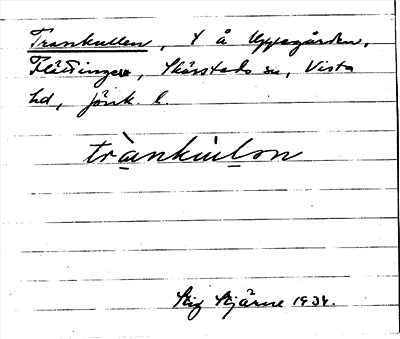 Trankullen, t å Uppegården,
Flättinge, Skärstads sn, Vista
hd, Jönk. l.
trànkùlon
Stig Stjärne 1934.